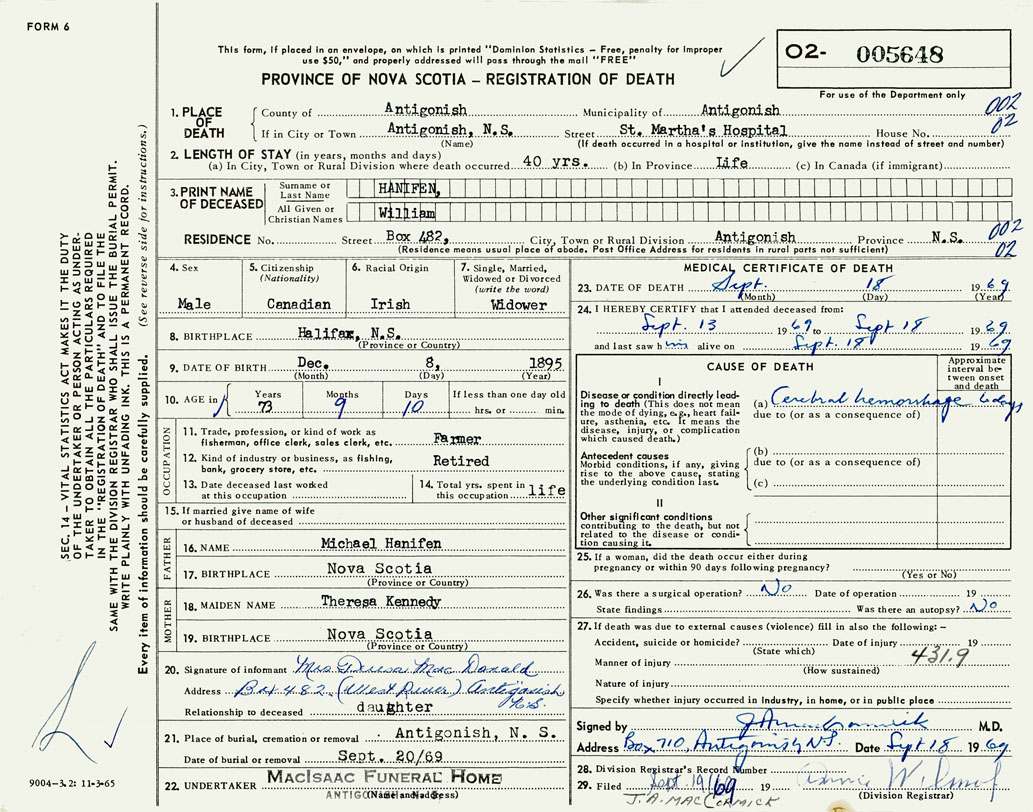 FORM 6
This form, if placed in an envelope, on which is printed "Dominion Statistics – Free, penalty for improper
use $50," and properly addressed will pass through the mail "FREE"
PROVINCE OF NOVA SCOTIA – REGISTRATION OF DEATH
O2- 005648
For use of the Department only
1. PLACE OF DEATH
County of Antigonish Municipality of Antigonish 002
If in City or Town Antigonish, N.S. Street St. Martha's Hospital House No. 02
(Name) (If death occurred in a hospital or institution, give the name instead of street and number)
2. LENGTH OF STAY (in years, months and days)
(a) In City, Town or Rural Division where death occurred 40 yrs. (b) In Province Life (c) In Canada (if immigrant)
3. PRINT NAME OF DECEASED
Surname or Last Name HANIFEN,
All Given or Christian Names William
RESIDENCE No. Street Box 482, City, Town or Rural Division Antigonish Province N.S. 002
(Residence means usual place of abode. Post Office Address for residents in rural parts not sufficient) 02
4. Sex Male
5. Citizenship (Nationality) Canadian
6. Racial Origin Irish
7. Single, Married, Widowed or Divorced (write the word) Widower
8. BIRTHPLACE Halifax, N.S.
(Province or Country)
9. DATE OF BIRTH Dec. 8, 1895
(Month) (Day) (Year)
10. AGE in Years 73 Months 9 Days 10 If less than one day old hrs. or min.
OCCUPATION
11. Trade, profession, or kind of work as fisherman, office clerk, sales clerk, etc. Farmer
12. Kind of industry or business, as fishing, bank, grocery store, etc. Retired
13. Date deceased last worked at this occupation
14. Total yrs. spent in this occupation life
15. If married give name of wife or husband of deceased
FATHER
16. NAME Michael Hanifen
17. BIRTHPLACE Nova Scotia
(Province or Country)
MOTHER
18. MAIDEN NAME Theresa Kennedy
19. BIRTHPLACE Nova Scotia
(Province or Country)
20. Signature of informant Mrs. Mac Donald
Address Box 482 (West River) Antigonish N.S.
Relationship to deceased daughter
21. Place of burial, cremation or removal Antigonish, N. S.
Date of burial or removal Sept. 20/69
22. UNDERTAKER MACISAAC FUNERAL HOME
(Name and Address)
MEDICAL CERTIFICATE OF DEATH
23. DATE OF DEATH Sept. 18 1969
(Month) (Day) (Year)
24. I HEREBY CERTIFY that I attended deceased from:
Sept. 13 1969 to Sept 18 1969
and last saw him alive on Sept. 18 1969
CAUSE OF DEATH
Approximate interval between onset and death
I
Disease or condition directly leading to death (This does not mean the mode of dying, e.g., heart failure, asthenia, etc. It means the disease, injury, or complication which caused death.)
(a) Cerebral hemorrhage 6 days
due to (or as a consequence of)
Antecedent causes
Morbid conditions, if any, giving rise to the above cause, stating the underlying condition last.
(b)
due to (or as a consequence of)
(c)
II
Other significant conditions contributing to the death, but not related to the disease or condition causing it.
25. If a woman, did the death occur either during pregnancy or within 90 days following pregnancy?
(Yes or No)
26. Was there a surgical operation? No Date of operation 19
State findings Was there an autopsy? No
27. If death was due to external causes (violence) fill in also the following: –
Accident, suicide or homicide? Date of injury 19
(State which) 431.9
Manner of injury
(How sustained)
Nature of injury
Specify whether injury occurred in Industry, in home, or in public place
Signed by M.D.
Address Box 710, Antigonish N.S. Date Sept 18 1969
28. Division Registrar's Record Number
29. Filed Sept 19/69 19
(Division Registrar)
J.A. MACCORMICK
SEC. 14 – VITAL STATISTICS ACT MAKES IT THE DUTY
OF THE UNDERTAKER OR PERSON ACTING AS UNDER-
TAKER TO OBTAIN ALL THE PARTICULARS REQUIRED
IN THE "REGISTRATION OF DEATH" AND TO FILE THE
SAME WITH THE DIVISION REGISTRAR WHO SHALL ISSUE THE BURIAL PERMIT.
WRITE PLAINLY WITH UNFADING INK. THIS IS A PERMANENT RECORD.
Every item of information should be carefully supplied. (See reverse side for instructions.)
9004–3.2: 11-3-65